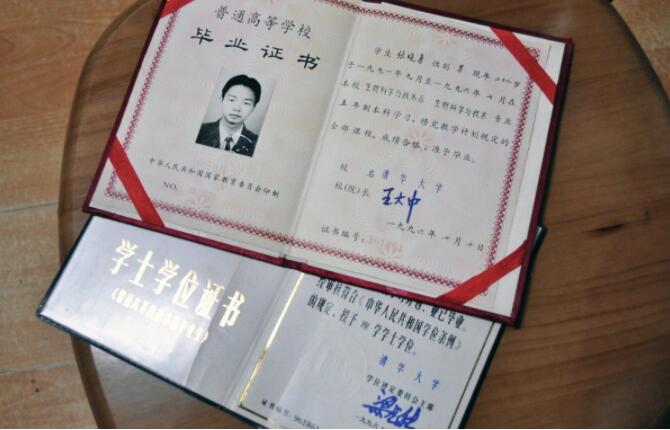 普通高等学校
毕业证书
中华人民共和国国家教育委员会印制
NO.
学生 张晓勇 性别 男 现年 二十二 岁
于一九九一年九月至一九九六年七月在
本校 生物科学与技术系 生物科学与技术 专业
五年制本科学习,修完教学计划规定的
全部课程,成绩合格,准予毕业。
校 名 清华大学
校(院)长 王大中
一九九六年七月十日
证书编号:
学士学位证书
业已毕业。
经审核符合《中华人民共和国学位条例》
的规定,授予 理 学学士学位。
清华大学
学位评定委员会主席
一九九六
证书编号: